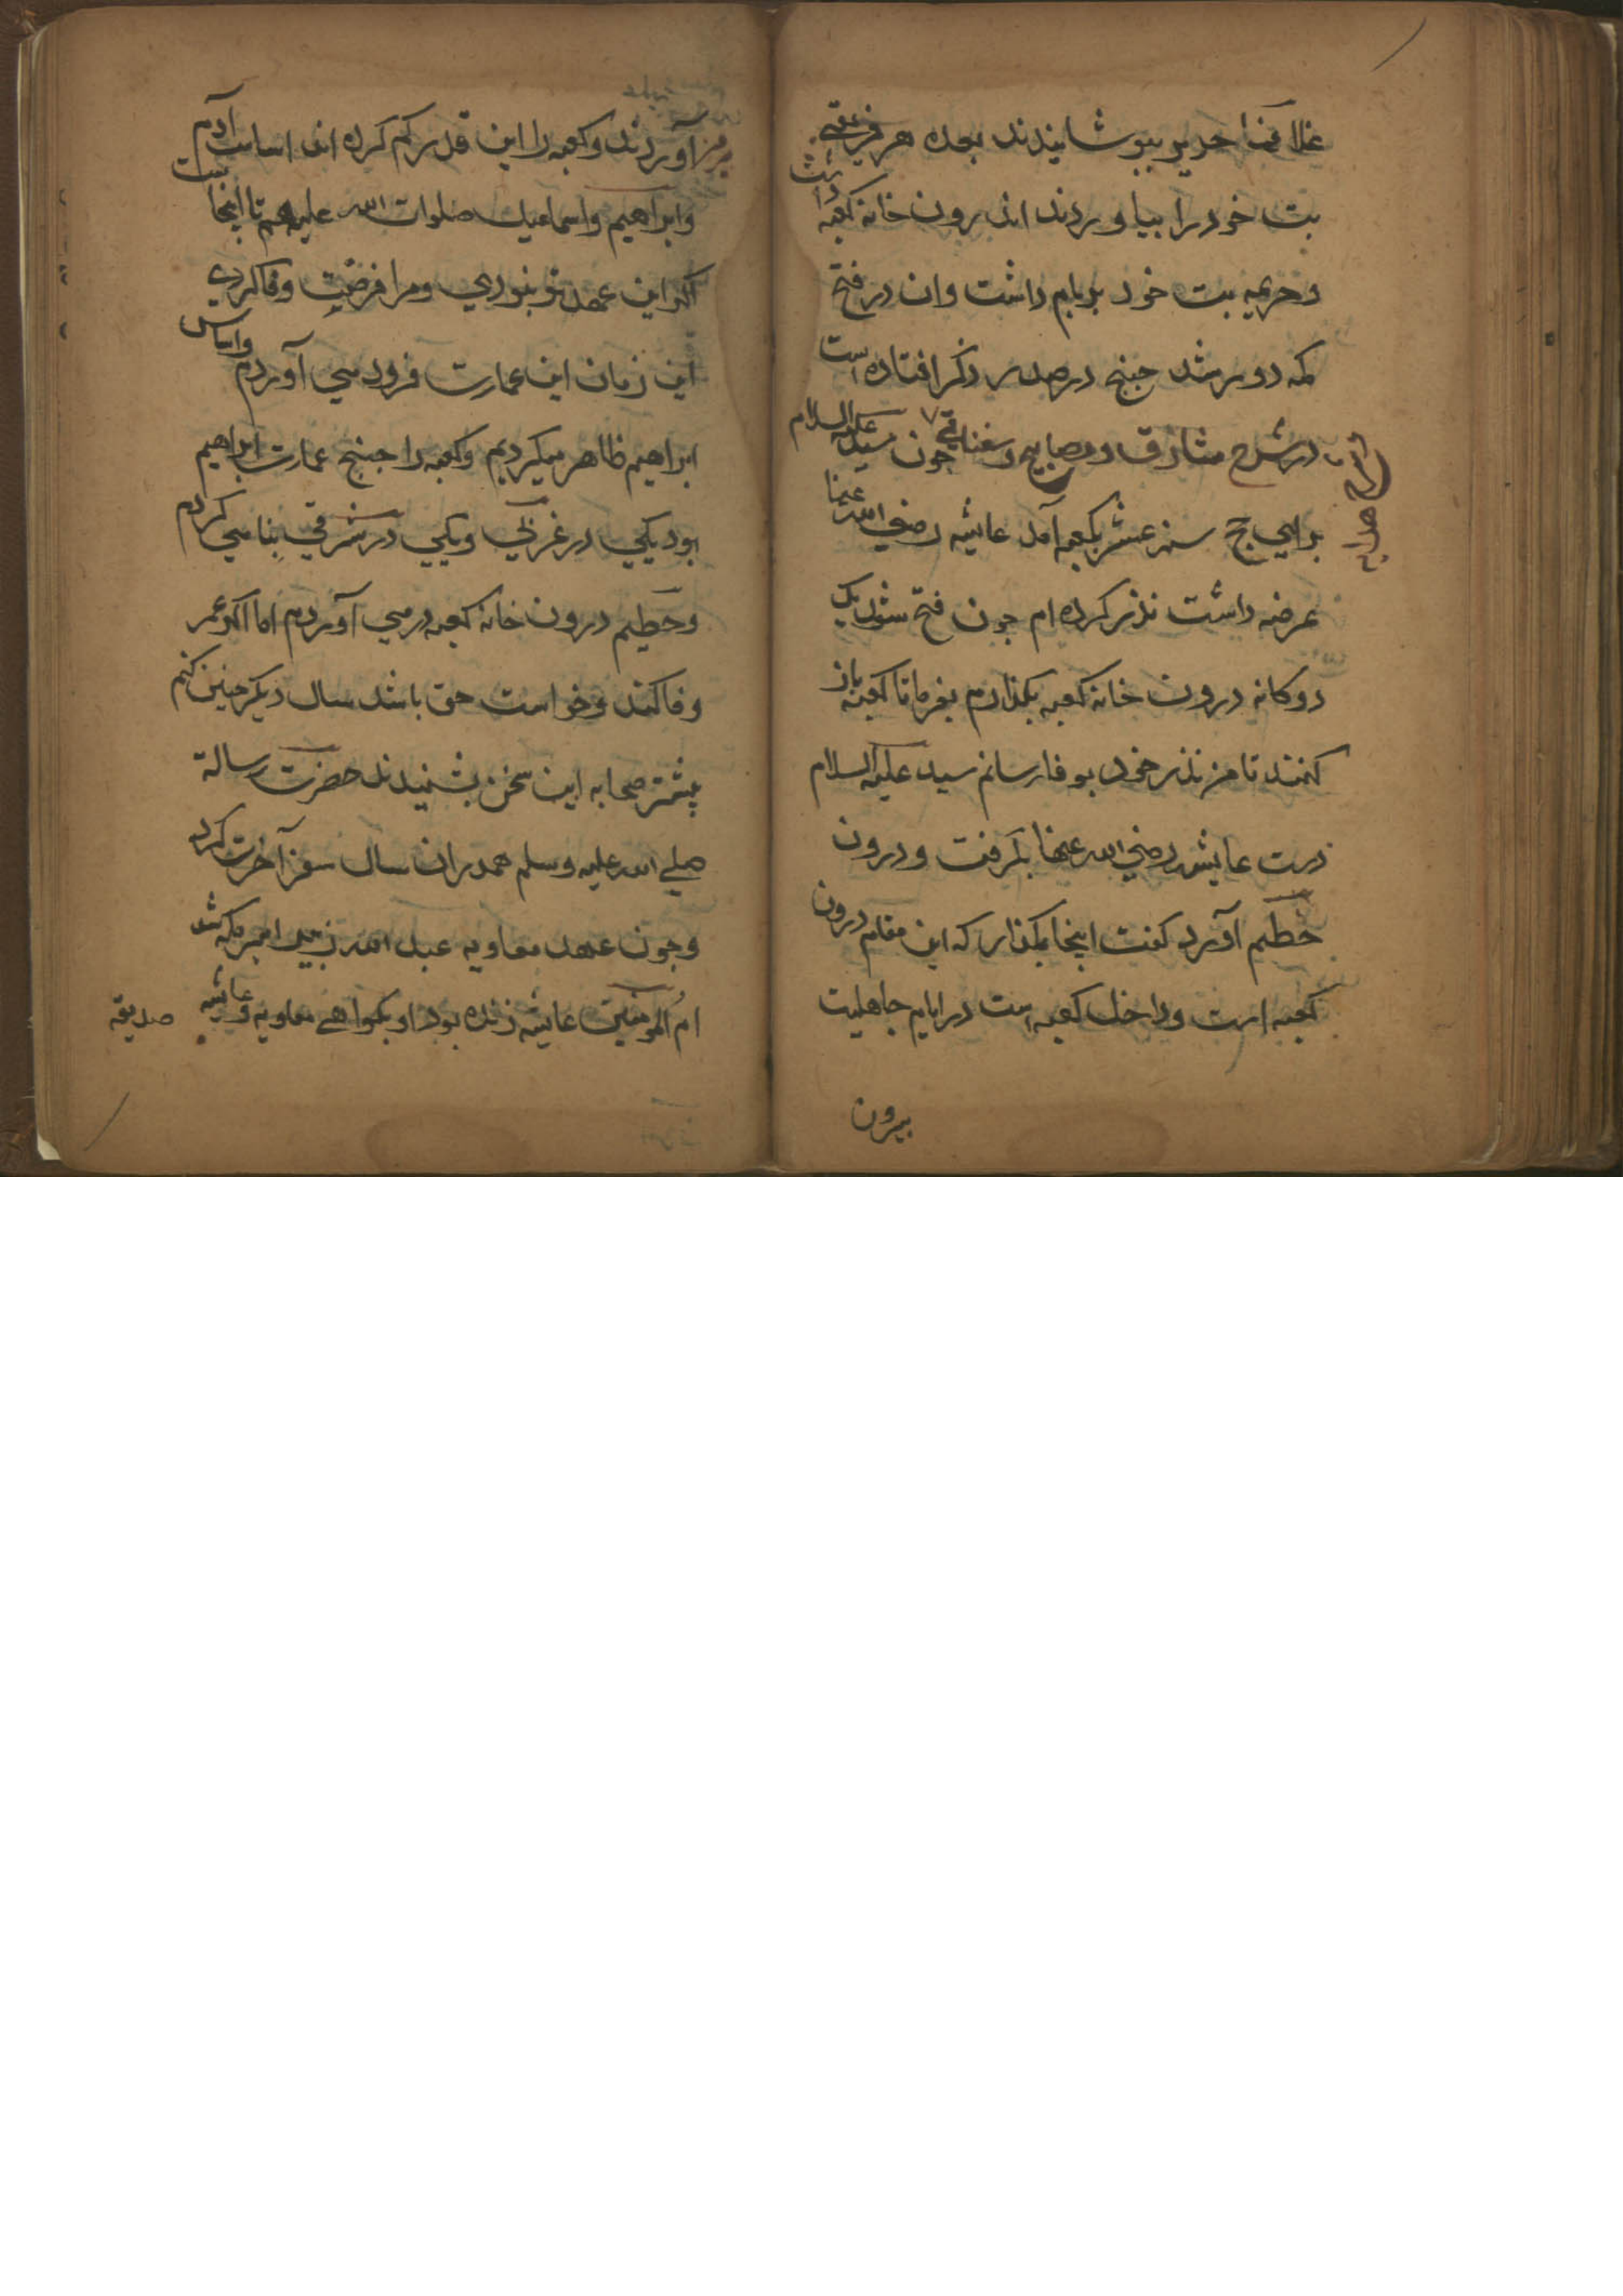 غلافها حریر بپوشانیدند بعده هر فریقی
بت خود را بیاوردند اندرون خانه کعبه داشت
و خزیمه بت خود بر بام داشت وان در فتح
مکه دور شد جنانچ در صدر ذکر افتاده است
در شرح مشارق و مصابیح و سغناقی چون سید علیه السلام
برای حج سنه عشر بکعبه آمد عایشه رضي الله عنها
عرضه داشت نذر کرده ام جون فتح شود یک
دوکانه درون خانه کعبه بکذارم بفرما تا کعبه باز
کنند تا من نذر خود بوفا رسانم سید علیه السلام
دست عایشه رضي الله عنها بکرفت و درون
حطیم آورد کفت اینجا بکذار که این مقام درون
کعبه است و داخل کعبه است در ایام جاهلیت
بیرون
آوردند و کعبه را این قدر کم کرده اند اساس آدم
وابراهیم واسماعیل صلوات الله علیهم تا اینجاست
اکر این عهد تو بنودي و مرا فرصت وفا کردي
این زمان این عمارت فرود می آوردم واساس
ابراهیم ظاهر میکردیم و کعبه را جنانچ عمارت ابراهیم
بود یکي در غربي ویکي در شرقي بنا می کردم
وحطیم درون خانه کعبه در می آوردم اما اکر عمر
وفا کند و خواست حق باشد سال دیکر جنین کنم
بیشتر صحابه این سخن بشنیدند حضرت رسالة
صلی الله علیه وسلم همدران سال سفر آخرت کرد
و جون عهد معاویه عبد الله زبیر امیر مکه شد
ام المومنین عایشه زنده بود او بکواهي معاویه و عایشه صدیقه